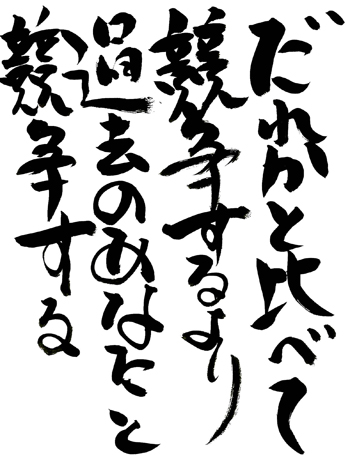 だれかと比べて
競争するより
過去のあなたと
競争する